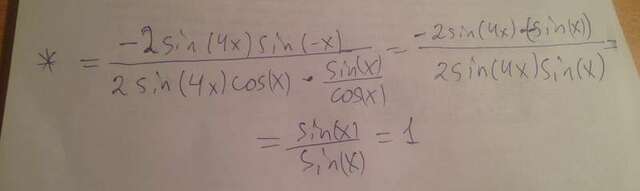 * = \frac{-2 sin(4x) sin(-x)}{2 sin(4x) cos(x) \cdot \frac{sin(x)}{cos(x)}} = \frac{-2 sin(4x) \cdot (-sin(x))}{2 sin(4x) sin(x)} =
= \frac{sin(x)}{sin(x)} = 1